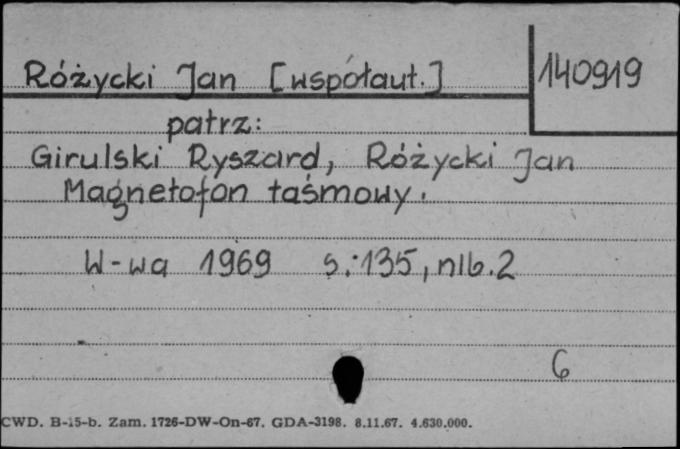 Różycki Jan [współaut.]
140919
patrz:
Girulski Ryszard, Różycki Jan
Magnetofon taśmowy.
W-wa 1969 s.:135, nlb.2
6
CWD. B-15-b. Zam. 1726-DW-On-67. GDA-3198. 8.11.67. 4.630.000.